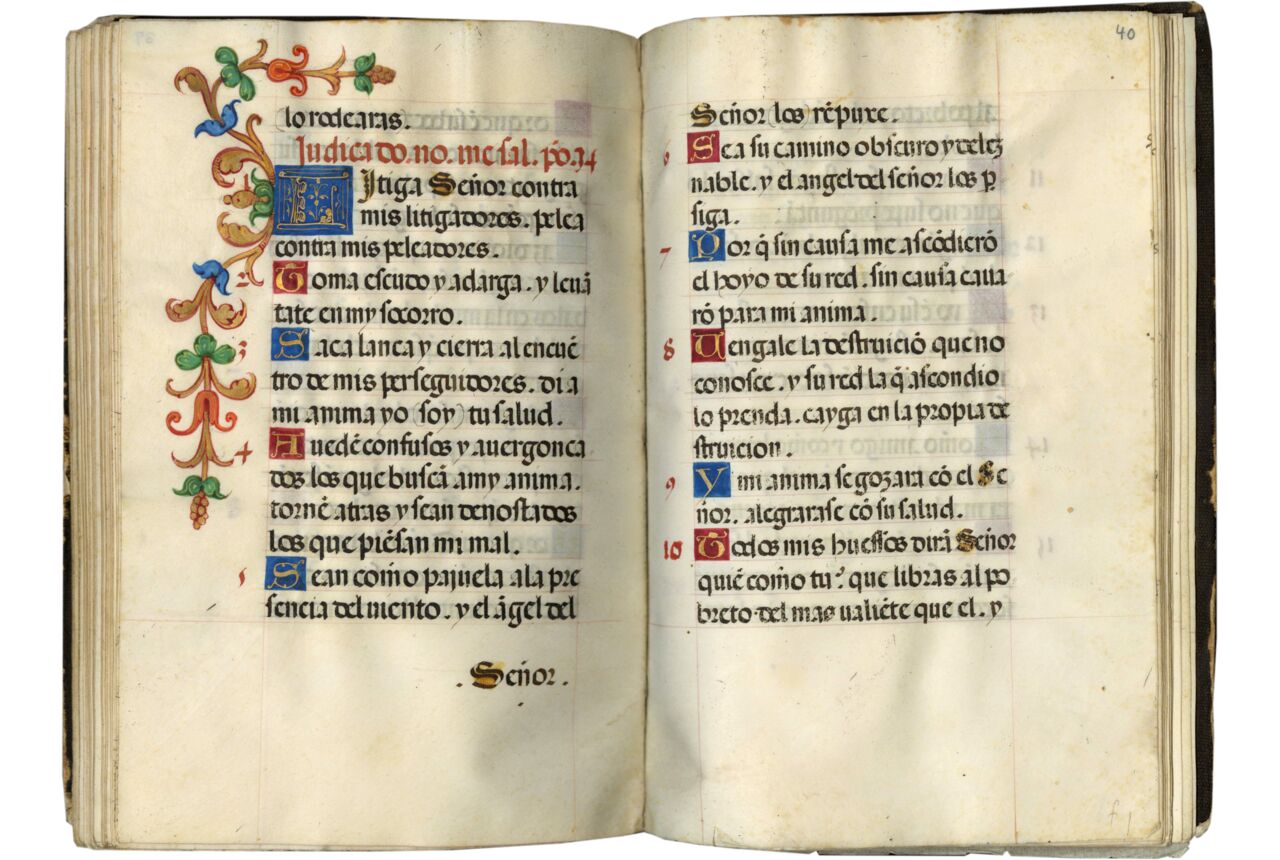 lo rodearas.
Judica do. no. me sal. pō. 34
Litiga Señor contra
mis litigadores. pelea
contra mis peleadores.
2 Toma escudo y adarga. y leuā
tate en my socorro.
3 Saca lanca y cierra al encuē
tro de mis perseguidores. di a
mi anima yo soy tu salud.
4 Auedē confusos y auergonca
dos los que buscā a my anima.
tornē atras y sean denostados
los que piēsan mi mal.
5 Sean como pajuela a la pre
sencia del uiento. y el āgel del
. Señor.
40
Señor los rēpuxe.
6 Sea su camino obscuro y delez
nable. y el angel del señor los ꝑ
siga.
7 Por q̄ sin causa me ascōdierō
el hoyo de su red. sin causa caua
rō para mi anima.
8 Uengale la destruiciō que no
conosce. y su red la q̄ ascondio
lo prenda. cayga en la propia de
struicion.
9 Y mi anima se gozara cō el Se
ñor. alegrarase cō su salud.
10 Todos mis huessos dirā Señor
quiē como tu? que libras al po
breto del mas ualiēte que el. y